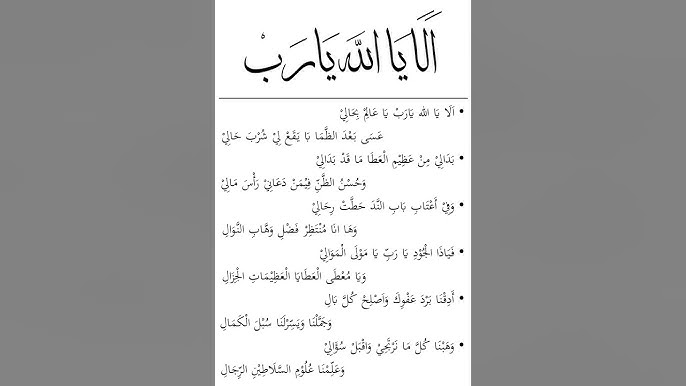 اَلَا يَا اللهْ يَارَبْ
• اَلَا يَا الله يَارَبْ يَا عَالِمٌ بِحَالِيْ
عَسَى بَعْدَ الظَّمَا بَا يَقَعْ لِيْ شُرْبَ حَالِيْ
• بَدَالِيْ مِنْ عَظِيْمِ الْعَطَا مَا قَدْ بَدَالِيْ
وَحُسْنُ الظَّنِّ فِيْمَنْ دَعَانِيْ رَأْسَ مَالِيْ
• وَفِيْ أَعْتَابِ بَابِ النَّدَ حَطَّتْ رِحَالِيْ
وَهَا انَا مُنْتَظِرْ فَضْلِ وَهَّابِ النَّوَالِ
• فَيَاذَا الْجُوْدِ يَا رَبِّ يَا مَوْلَى الْمَوَالِيْ
وَيَا مُعْطَى الْعَطَايَا الْعَظِيْمَاتِ الْجِزَالِ
• أَذِقْنَا بَرْدَ عَفْوِكَ وَاَصْلِحْ كُلَّ بَالِ
وَجَمَّلْنَا وَيَسِّرْلَنَا سُبْلَ الْكَمَالِ
• وَهَبْنَا كُلَّ مَا نَرْتَجِيْ وَاقْبَلْ سُؤَالِيْ
وَعَلِّمْنَا عُلُوْمِ السَّلَاطِيْنِ الرِّجَالِ